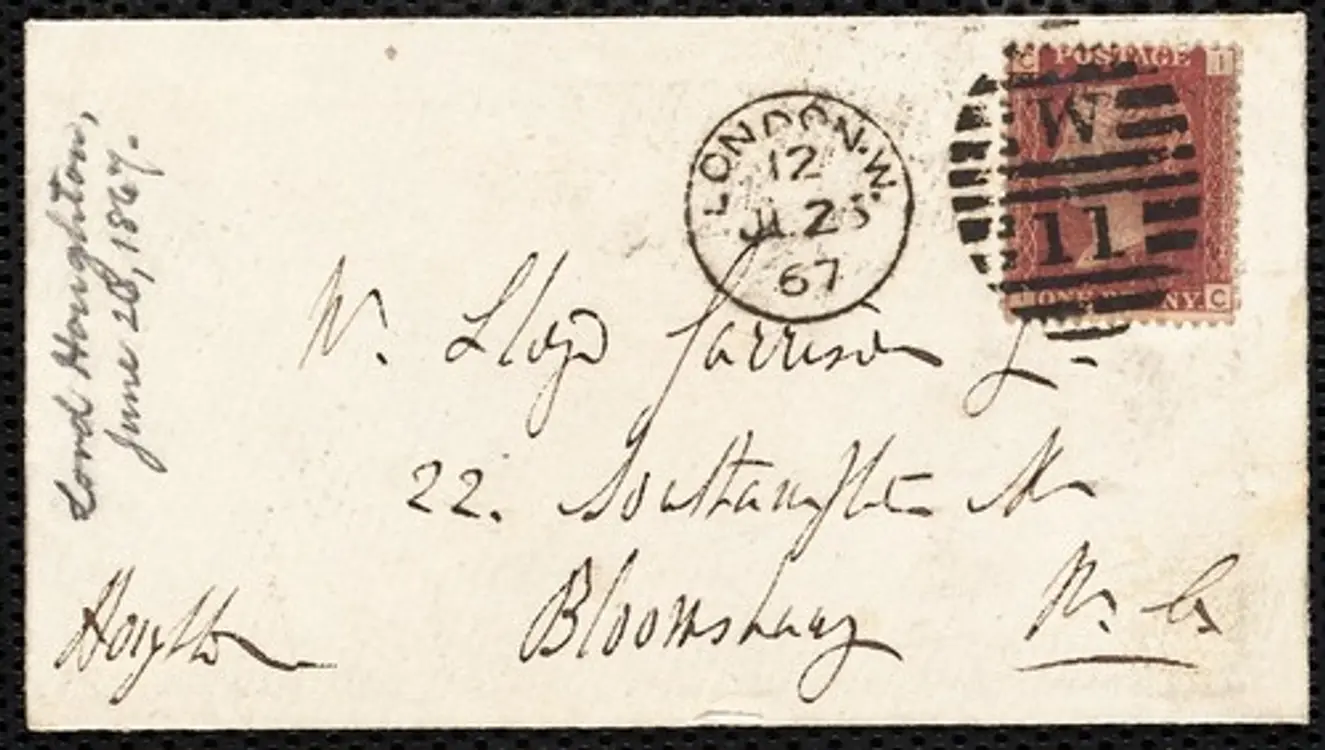 Lord Houghton,
June 28, 1867.
LONDON.W.
12
JL 25
67
C POSTAGE I
W
11
I ONE PENNY C
W. Lloyd Garrison
22. Southampton
Bloomsbury W. C.
Houghton